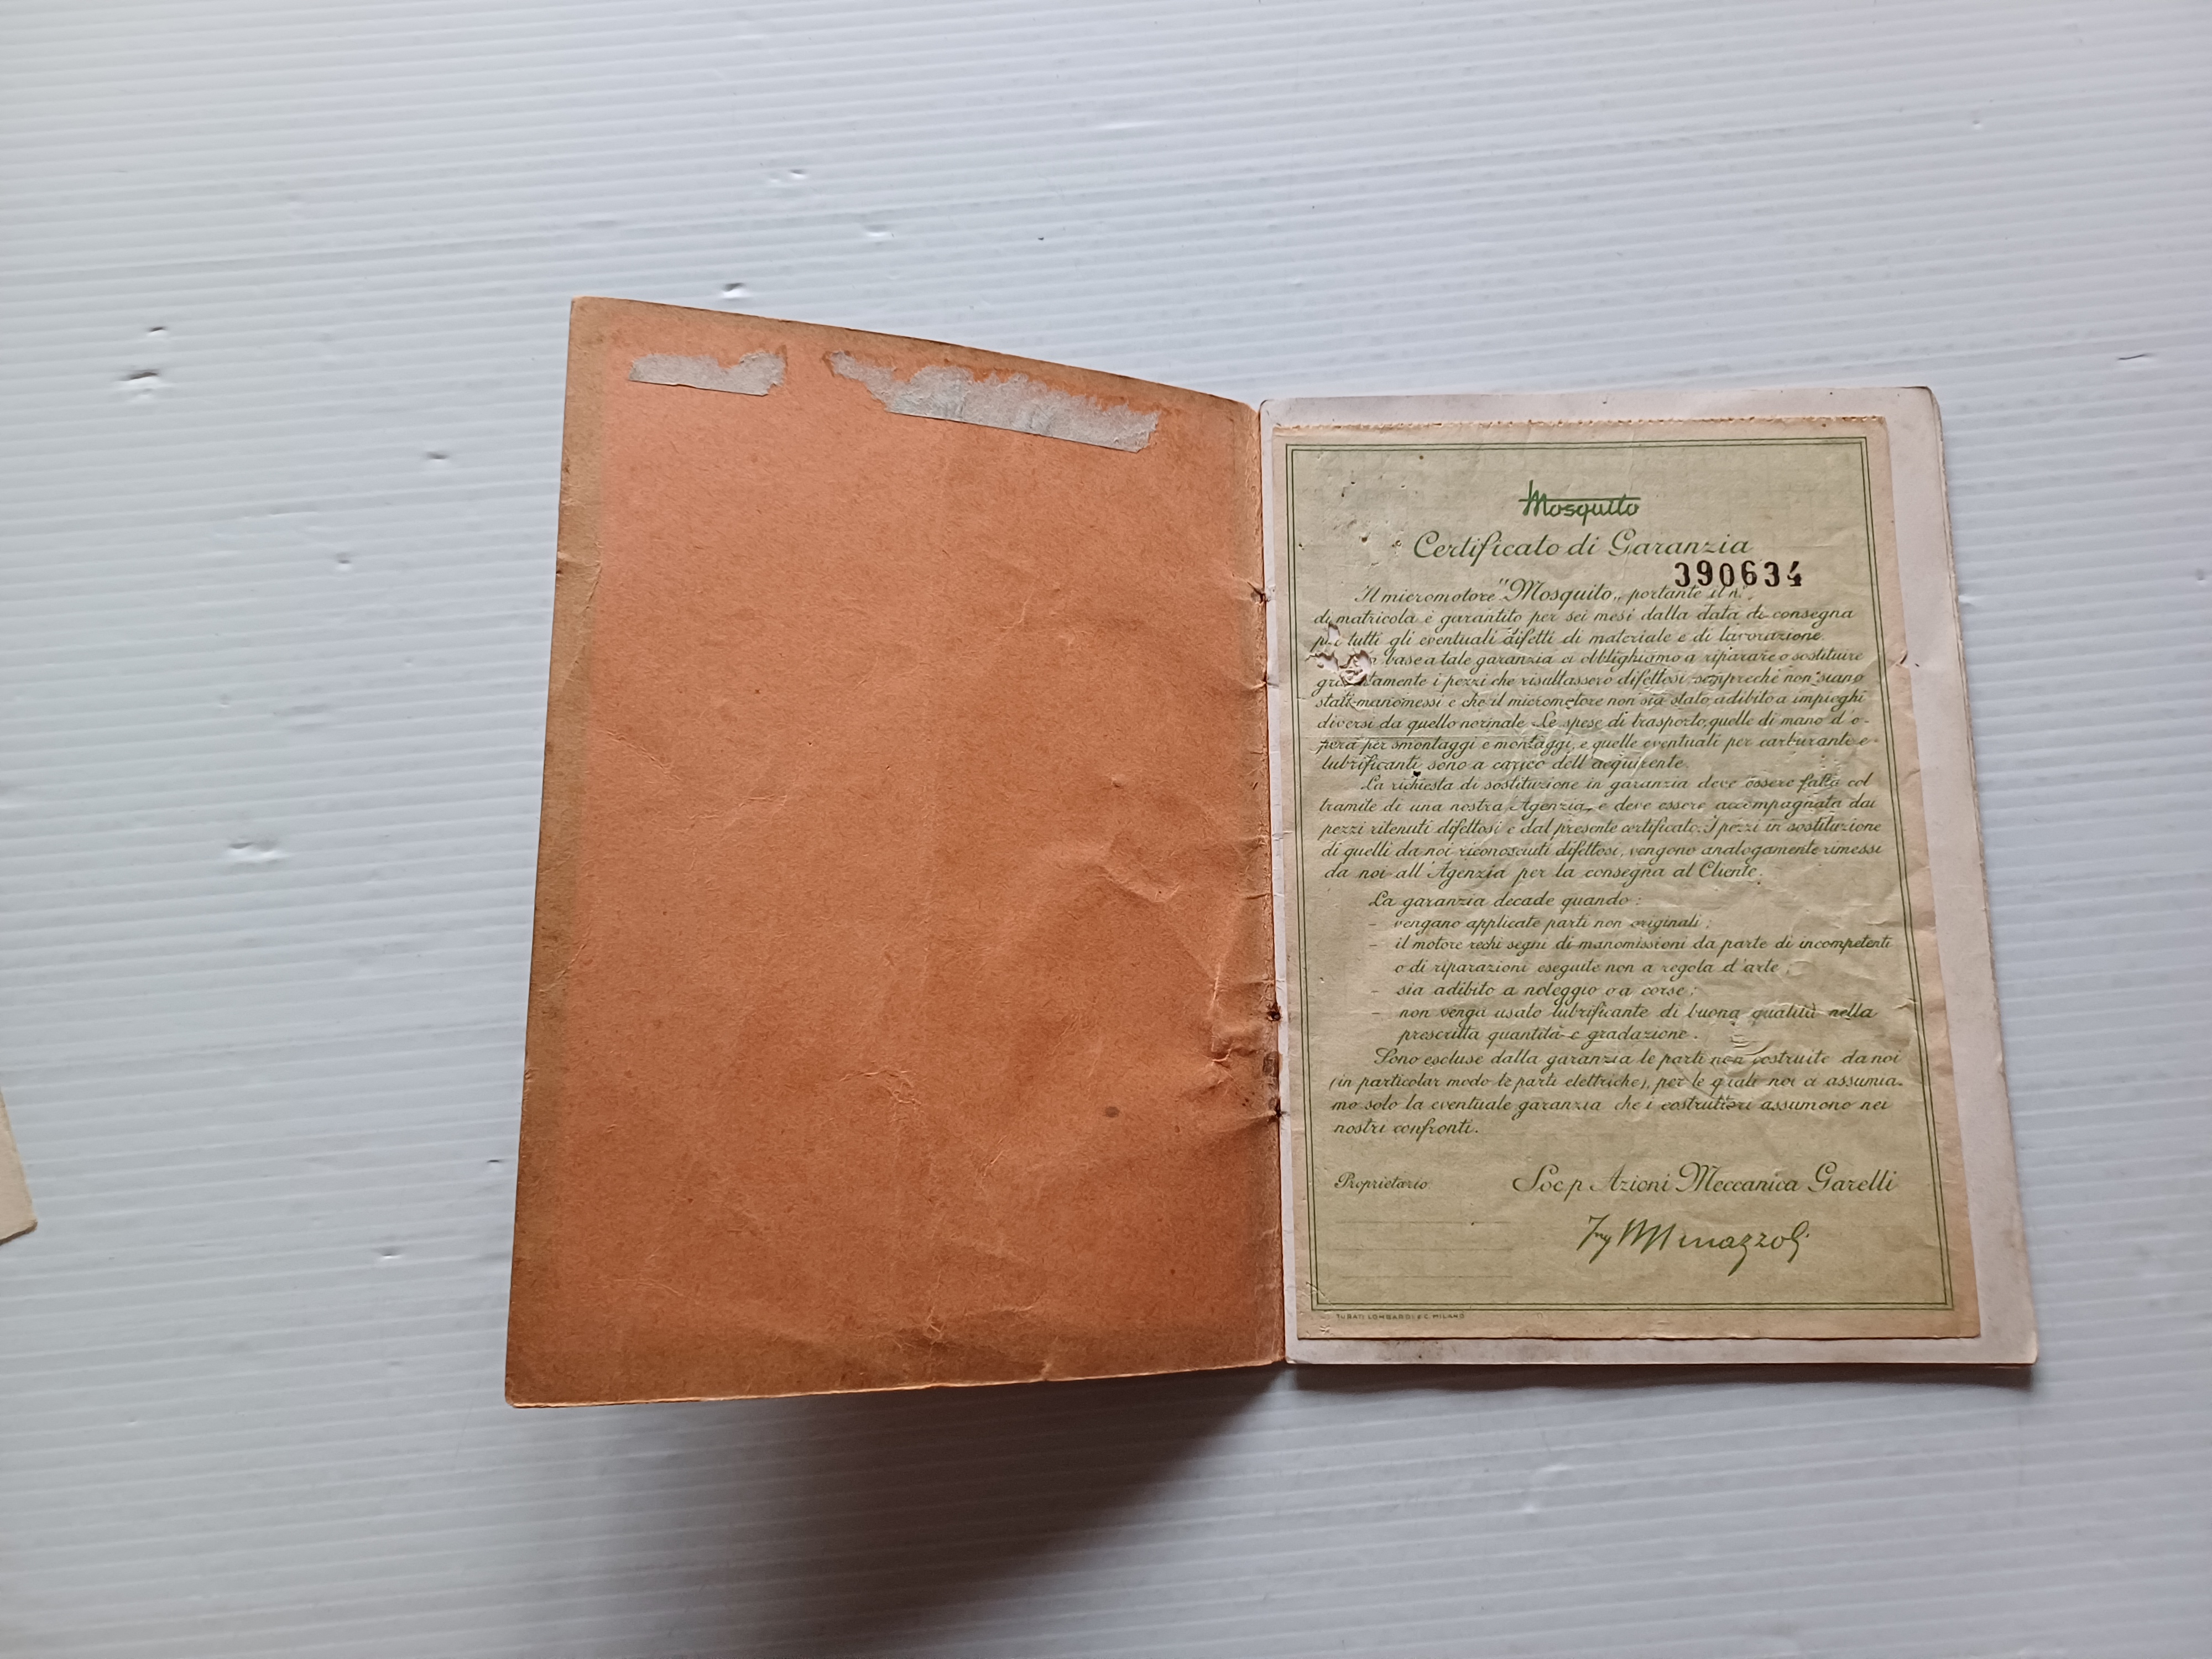 Mosquito
Certificato di Garanzia
390634
Il micromotore "Mosquito„ portante il n.
di matricola è garantito per sei mesi dalla data di consegna
per tutti gli eventuali difetti di materiale e di lavorazione.
base a tale garanzia ci obblighiamo a riparare o sostituire
gratuitamente i pezzi che risultassero difettosi sempreché non siano
stati manomessi e che il micromotore non sia stato adibito a impieghi
diversi da quello normale. Le spese di trasporto, quelle di mano d'o-
pera per smontaggi e montaggi, e quelle eventuali per carburante e
lubrificanti sono a carico dell'acquirente.
La richiesta di sostituzione in garanzia deve essere fatta col
tramite di una nostra Agenzia, e deve essere accompagnata dai
pezzi ritenuti difettosi e dal presente certificato. I pezzi in sostituzione
di quelli da noi riconosciuti difettosi, vengono analogamente rimessi
da noi all'Agenzia per la consegna al Cliente.
La garanzia decade quando:
- vengano applicate parti non originali;
- il motore rechi segni di manomissioni da parte di incompetenti
o di riparazioni eseguite non a regola d'arte;
- sia adibito a noleggio o a corse;
- non venga usato lubrificante di buona qualità nella
prescritta quantità e gradazione.
Sono escluse dalla garanzia le parti non costruite da noi
(in particolar modo le parti elettriche), per le quali noi ci assumia-
mo solo la eventuale garanzia che i costruttori assumono nei
nostri confronti.
Proprietario
Soc p Azioni Meccanica Garelli
Ing M Minazzoli
TURATI LOMBARDI E C. MILANO